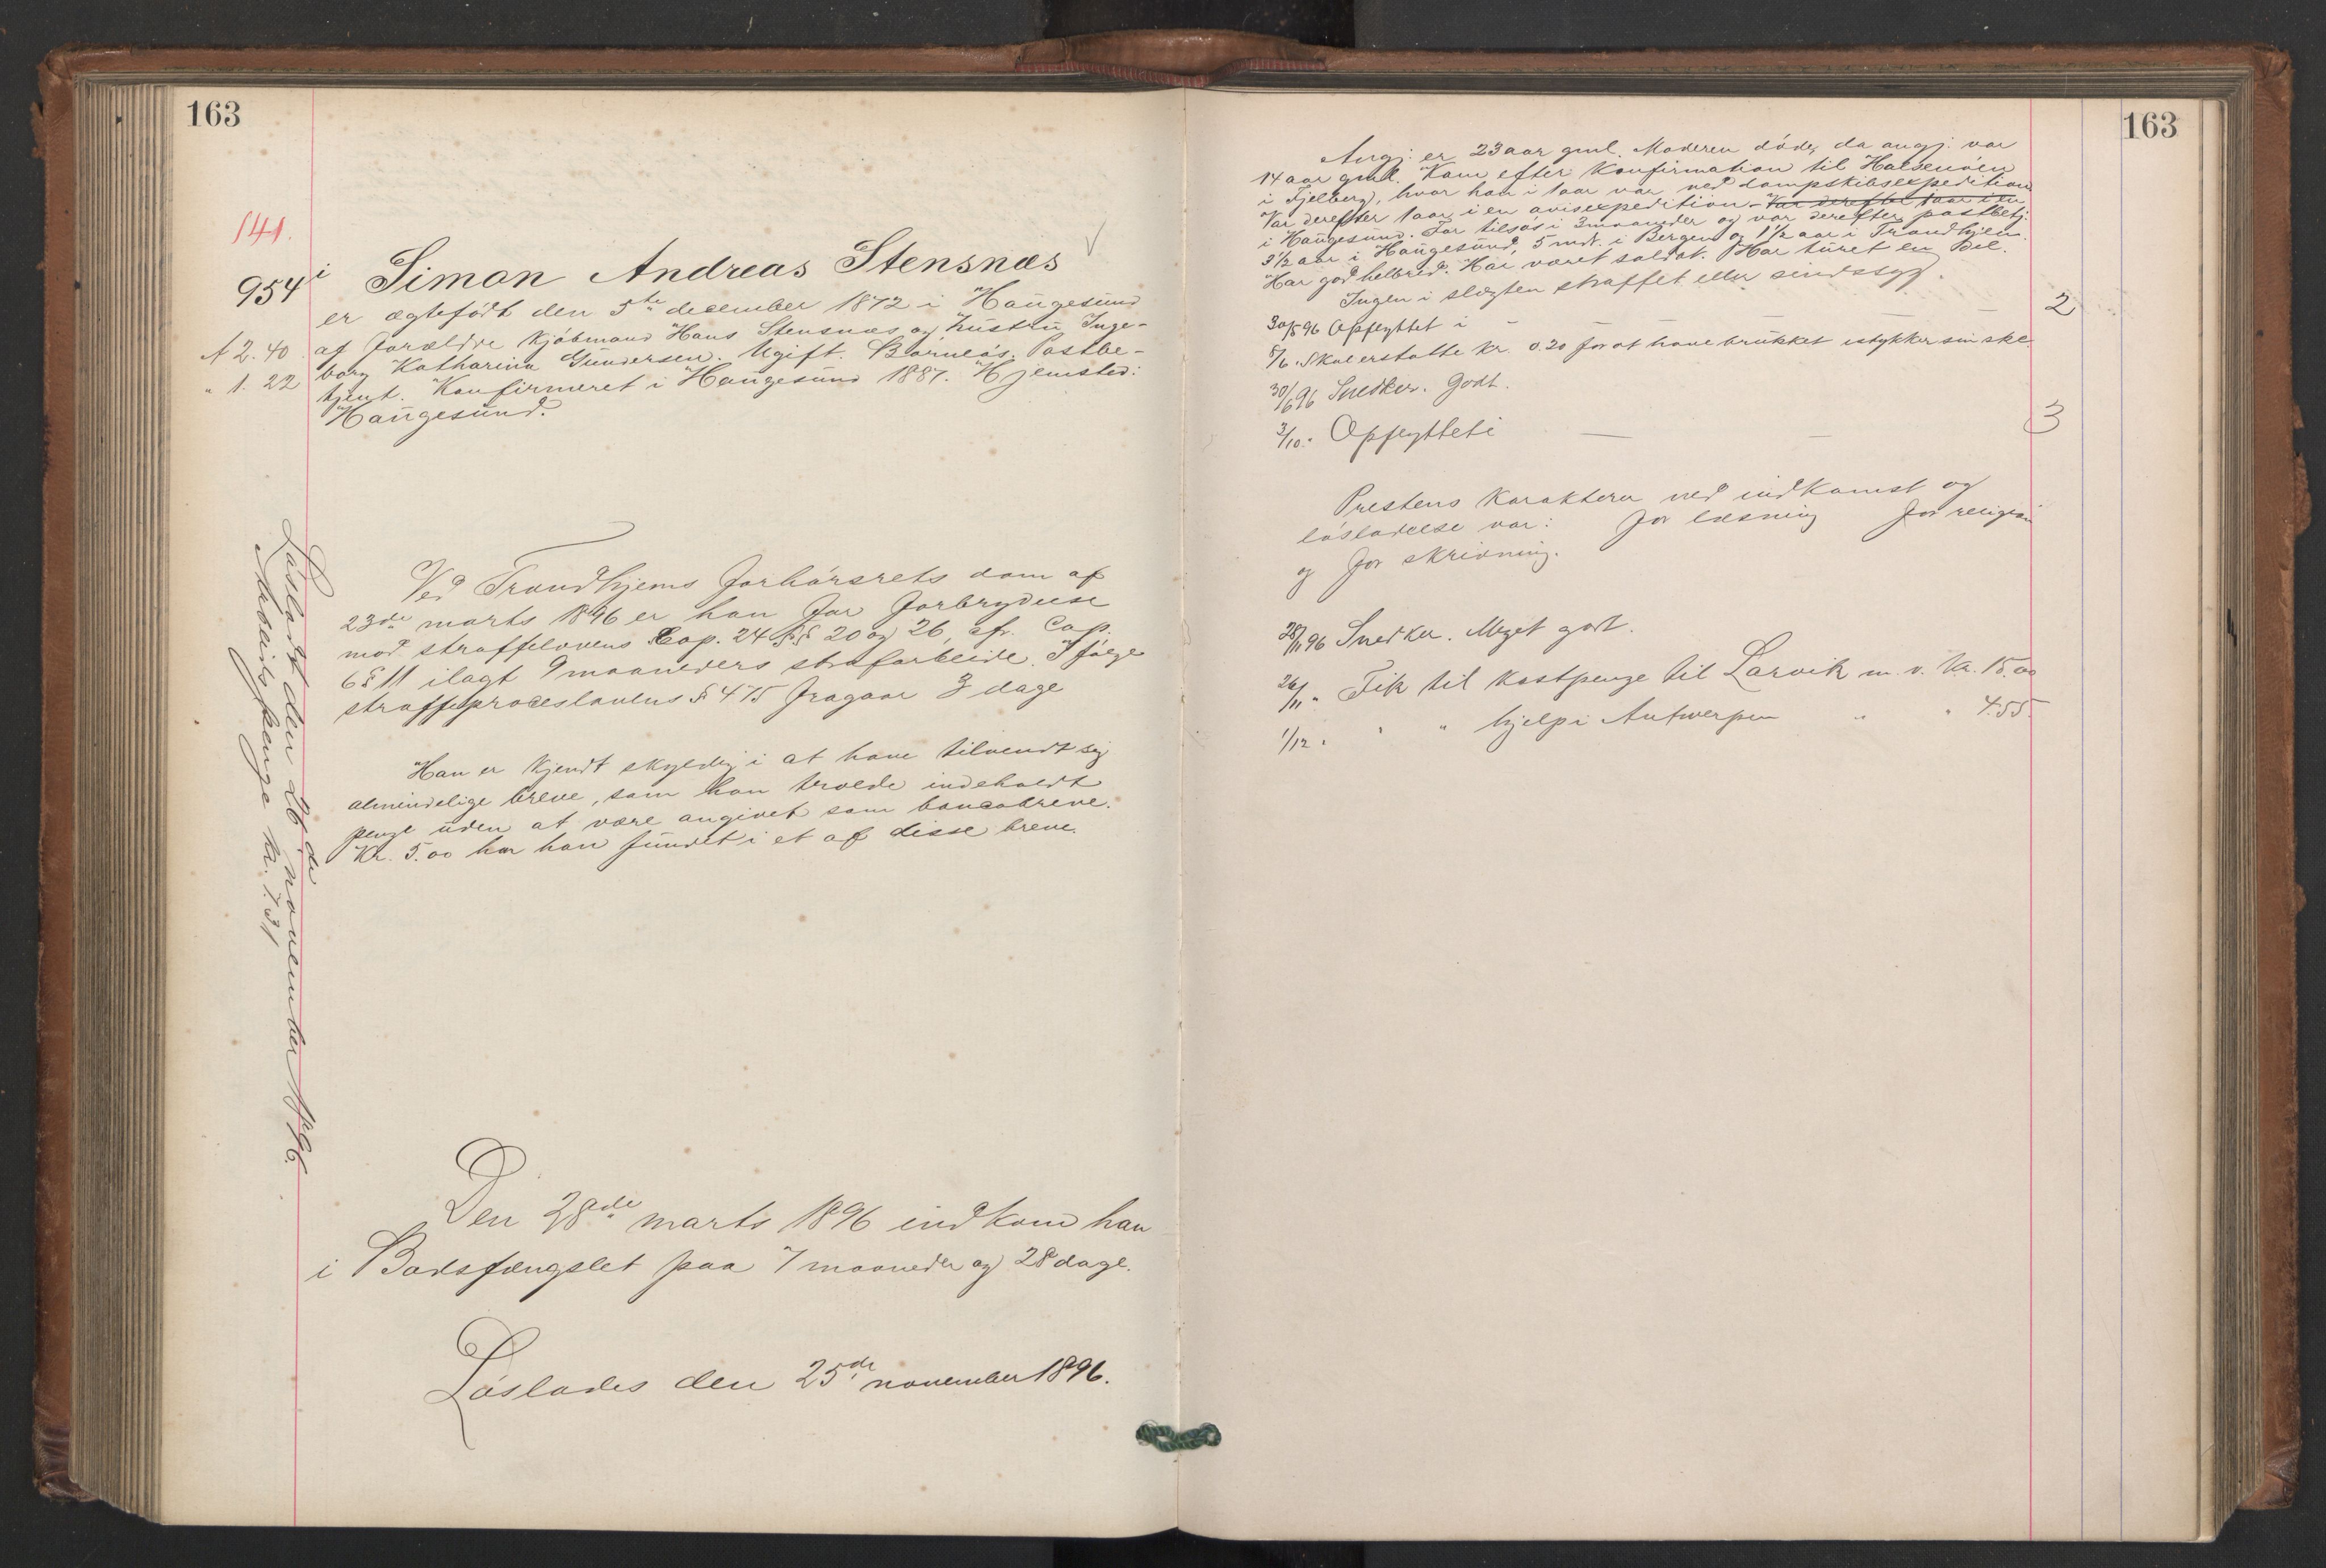 163
141.
954 i Simon Andreas Stensnæs
er ægtefödt den 5te december 1872 i Haugesund
A 2.40. af forældre Kjöbmand Hans Stensnæs og hustru Inge-
" 1.22 borg Katharina Gundersen. Ugift. Barnlös. Postbe-
tjent. Konfirmeret i Haugesund 1887. Hjemsted:
Haugesund.
Ved Trondhjems forhörsrets dom af
23de marts 1896 er han for forbrydelse
mod straffelovens Cap. 24 §§ 20 og 26, cfr. Cap.
6 § 11 ilagt 9 maaneders strafarbeide. Ifölge
straffeproceslovens § 475 fragaar 3 dage
Han er kjendt skyldig i at have tilvendt sig
almindelige breve, som han troede indeholdt
penge uden at være angivet som bancobreve.
Kr. 5.00 har han fundet i et af disse breve.
Den 28de marts 1896 indkom han
i Bodsfængslet paa 7 maaneder og 28 dage.
Löslades den 25de november 1896.
Lösladt den 26de november 1896.
Arbeidspenge kr. 7.31
163
Angj. er 23 aar gml. Moderen döde, da angj. var
14 aar gml. Kom efter Konfirmation til Halsenöen
i Fjelberg, hvor han i 1 aar var ved dampskibsexpedition
Var derefter 1 aar i en avisexpedition - Var derefter 1 aar i en
i Haugesund. Før tilsös i 3 maaneder og var derefter postbetj.
3½ aar i Haugesund, 5 mdr. i Bergen og 1½ aar i Trondhjem.
Har god helbred. Har været soldat. Har turet en Del.
Ingen i slægten straffet eller sindssyg.
30/5 96 Opflyttet i — — — — 2
8/6 " Skal erstatte kr. 0.20 for at have brukket istykker sin ske.
30/6 96 Snedker. Godt.
3/10 " Opflyttet i — — 3
Prestens Karakterer ved indkomst og
lösladelse var: for læsning for religion
og for skrivning.
28/11 96 Snedker. Meget godt.
26/11 " Fik til kostpenge til Larvik m. v. kr. 15.00
1/12 " " " hjelp i Antwerpen " " 4.55.